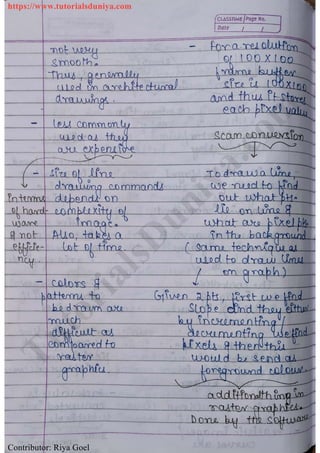 https://www.tutorialsduniya.com
CLASSTIME Page No.
Date / /
not very
smooth.
Thus, generally
used in architectural
drawings.
- less commonly
used as they
are expensive
- size of line
drawing commands
depends on
complexity of
image.
Also, takes a
lot of time.
in terms
of hard-
ware
& not
efficie-
ncy
- colors &
patterns to
be drawn are
much
difficult as
compared to
raster
graphics.
- For a resolution
of 100 X 100
frame buffer
size is 100X100
and thus it stores
each pixel value
scan conversion
To draw a line,
we need to find
out what pts.
lie on line &
what are pixel pts
in the background
(same technique as
used to draw lines
on graph)
Given 2 pts, first we find
slope and then either
by incrementing/
decrementing we find
pixels & then this
would be send as
foreground colour.
additional thing in
raster graphics.
Done by the software
TutorialsDuniya
Contributor: Riya Goel